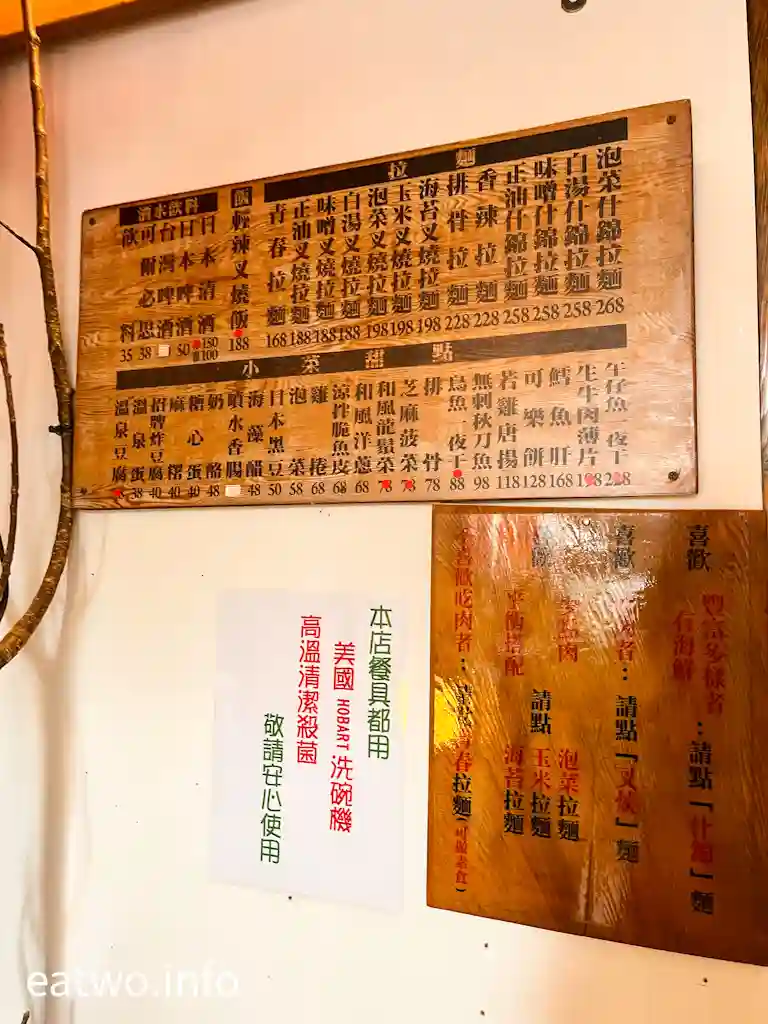 拉麵
泡菜什錦拉麵 268
白湯什錦拉麵 258
味噌什錦拉麵 258
正油什錦拉麵 258
香辣拉麵 228
排骨拉麵 228
海苔叉燒拉麵 198
玉米叉燒拉麵 198
泡菜叉燒拉麵 198
白湯叉燒拉麵 188
味噌叉燒拉麵 188
正油叉燒拉麵 188
青春拉麵 168
飯
輕辣叉燒飯 188
酒水飲料
日本清酒 150 100
日本啤酒
台灣啤酒 50
可爾必思 38
飲料 35
小菜甜點
午仔魚一夜干
生牛肉薄片 198
鱈魚肝 168
可樂餅 128
若雞唐揚 118
無刺秋刀魚 98
烏魚一夜干 88
排骨 78
芝麻菠菜
和風龍鬚菜
和風洋蔥 68
涼拌脆魚皮 68
雞捲 68
泡菜 58
日本黑豆 50
海藻醋 48
噴水香腸
奶酪 48
糖心蛋 40
麻糬 40
招牌炸豆腐 40
溫泉蛋 38
溫泉豆腐
喜歡 豐富多樣者
有海鮮 :請點「什錦」麵
喜歡 者:請點「叉燒」麵
肉 泡菜拉麵
請點 玉米拉麵
搭配 海苔拉麵
喜歡吃肉者:請 青春拉麵(可做素食)
本店餐具都用
美國 HOBART 洗碗機
高溫清潔殺菌
敬請安心使用
eatwo.info